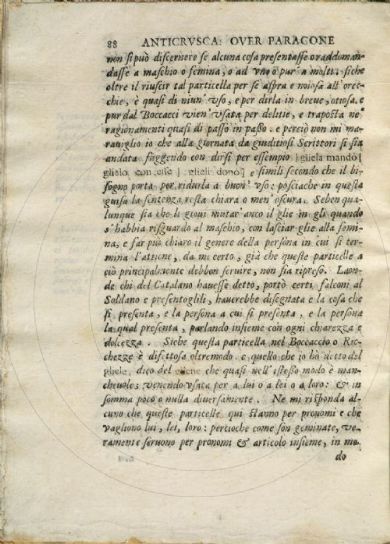 88 ANTICRVSCA: OVER PARAGONE
non si può discernere se alcuna cosa presentasse o raddoman-
dasse a maschio o femina, o ad vno o pur a molti: siche
oltre il riuscir tal particella per se aspra e noiosa all'orec-
chie, è quasi di niun'vso, e per dirla in breue, otiosa, e
pur dal Boccacci vien'vsata per delitie, e traposta ne'
ragionamenti quasi di passo in passo. e perciò non mi ma-
rauiglio io che alla giornata da giuditiosi Scrittori si sia
andata fuggendo con dirsi per essempio [gliela mandò]
glielo concesse [glieli donò] e simili secondo che il bi-
sogno porta per ridurla a buon'vso: posciache in questa
guisa la sentenza resta chiara o men'oscura. Seben qua-
lunque sia che li gioui mutar anco il glie in gli quando
s'habbia risguardo al maschio, con lasciar glie alla femi-
na, e far più chiaro il genere della persona in cui si ter-
mina l'attione, da mi certo, già che queste particelle a
ciò principalmente debbon seruire, non sia ripreso. Laon-
de chi del Catalano hauesse detto, portò certi falconi al
Soldano e presentoglili, hauerebbe disegnata e la cosa che
si presenta, e la persona a cui si presenta, e la persona
la qual presenta, parlando insieme con ogni chiarezza e
dolcezza. Siche questa particella nel Boccaccio o Ric-
chezze è difettosa oltremodo e quello che io hò detto del
gliele, dico del che quasi nell'istesso modo è man-
cheuole; venendo vsata per a lui o a lei o a loro: & in
somma poco o nulla diuersamente. Ne mi risponda al-
cuno che queste particelle qui stanno per pronomi e che
vagliono lui, lei, loro: percioche come son geminate, ve-
ramente seruono per pronomi & articolo insieme, in mo-
do